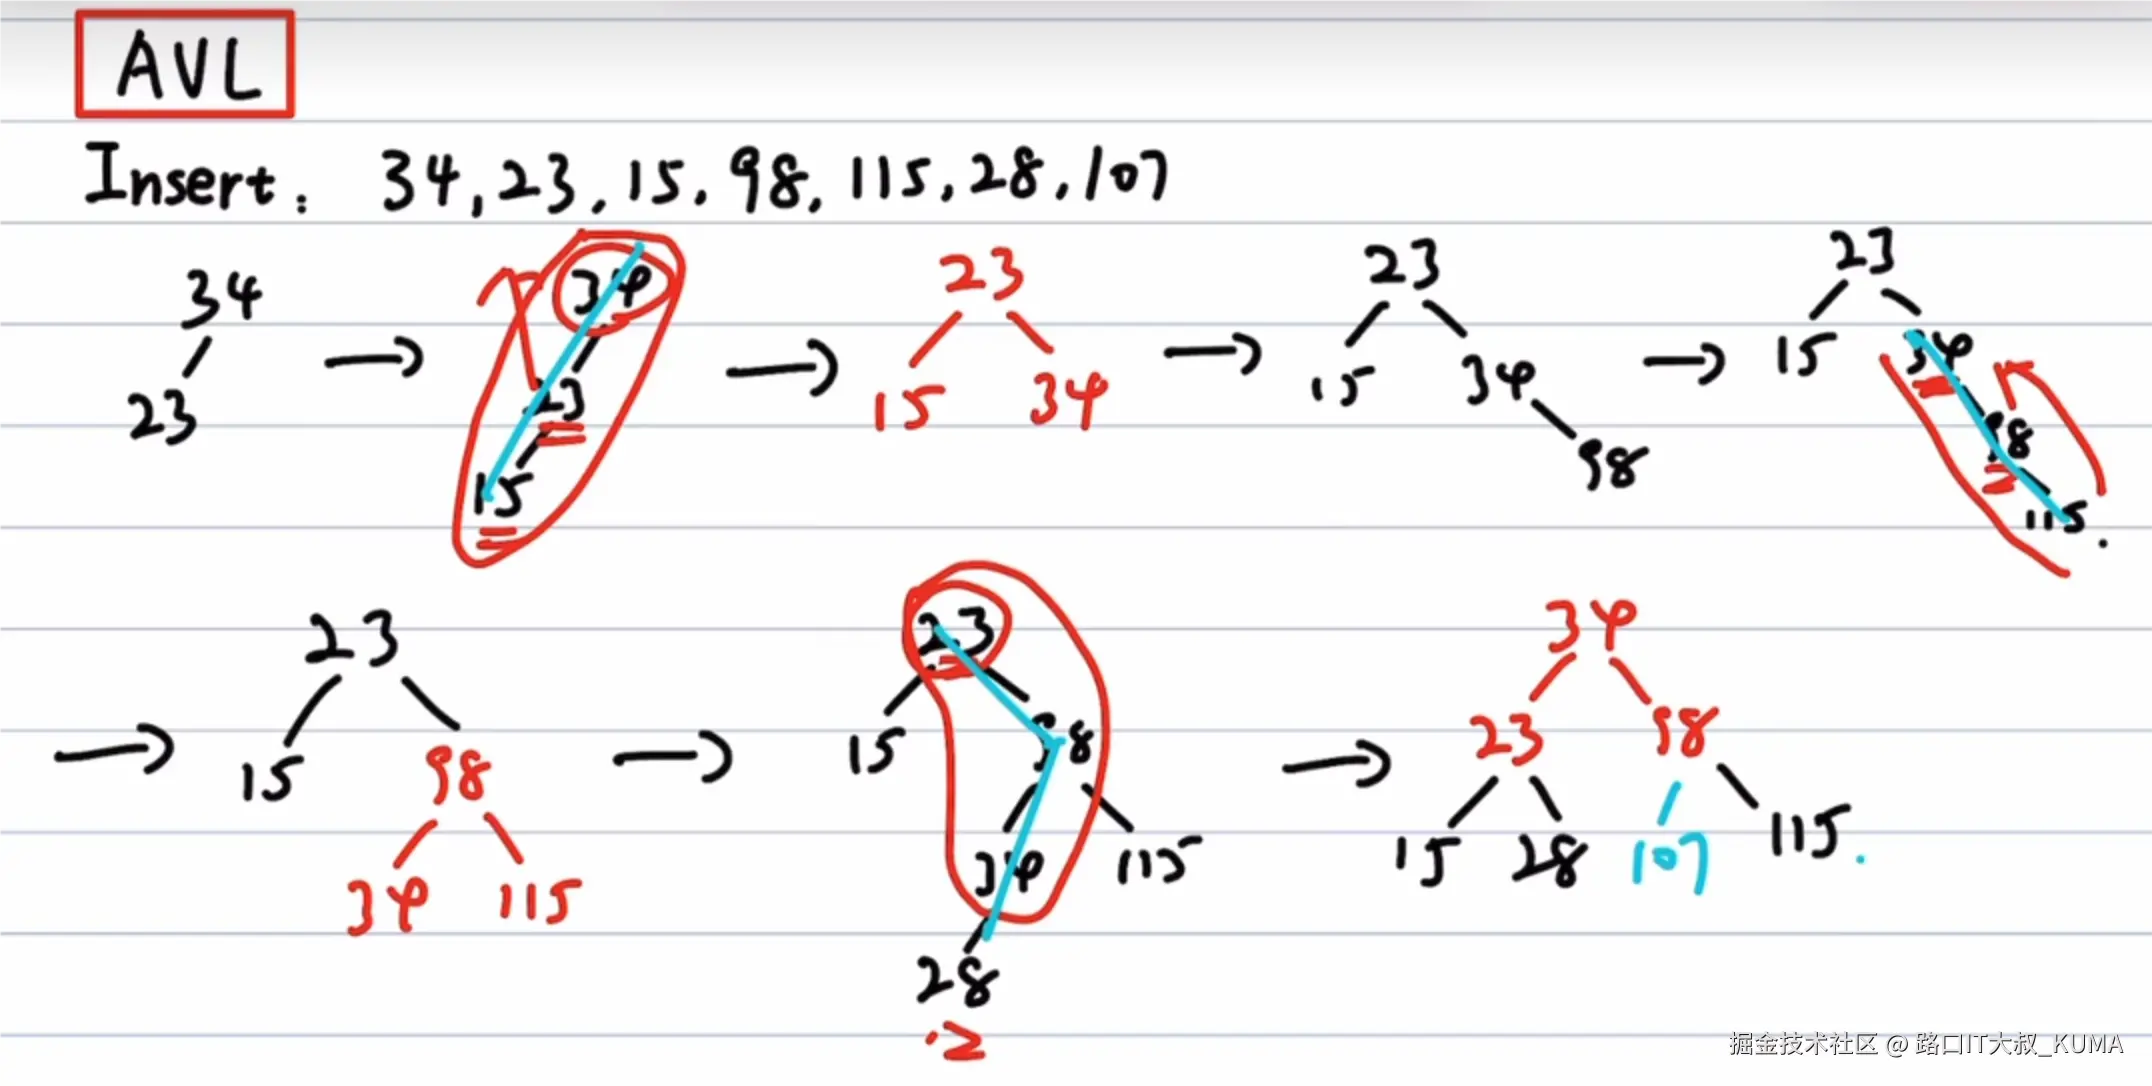 AVL
Insert: 34, 23, 15, 98, 115, 28, 107
34 34 23 23 23
23 23 15 34 15 34 15 34
15 98 98
115.
23 23 34
15 98 15 98 23 98
34 115 34 115 15 28 107 115.
28
.2
掘金技术社区 @ 路口IT大叔_KUMA